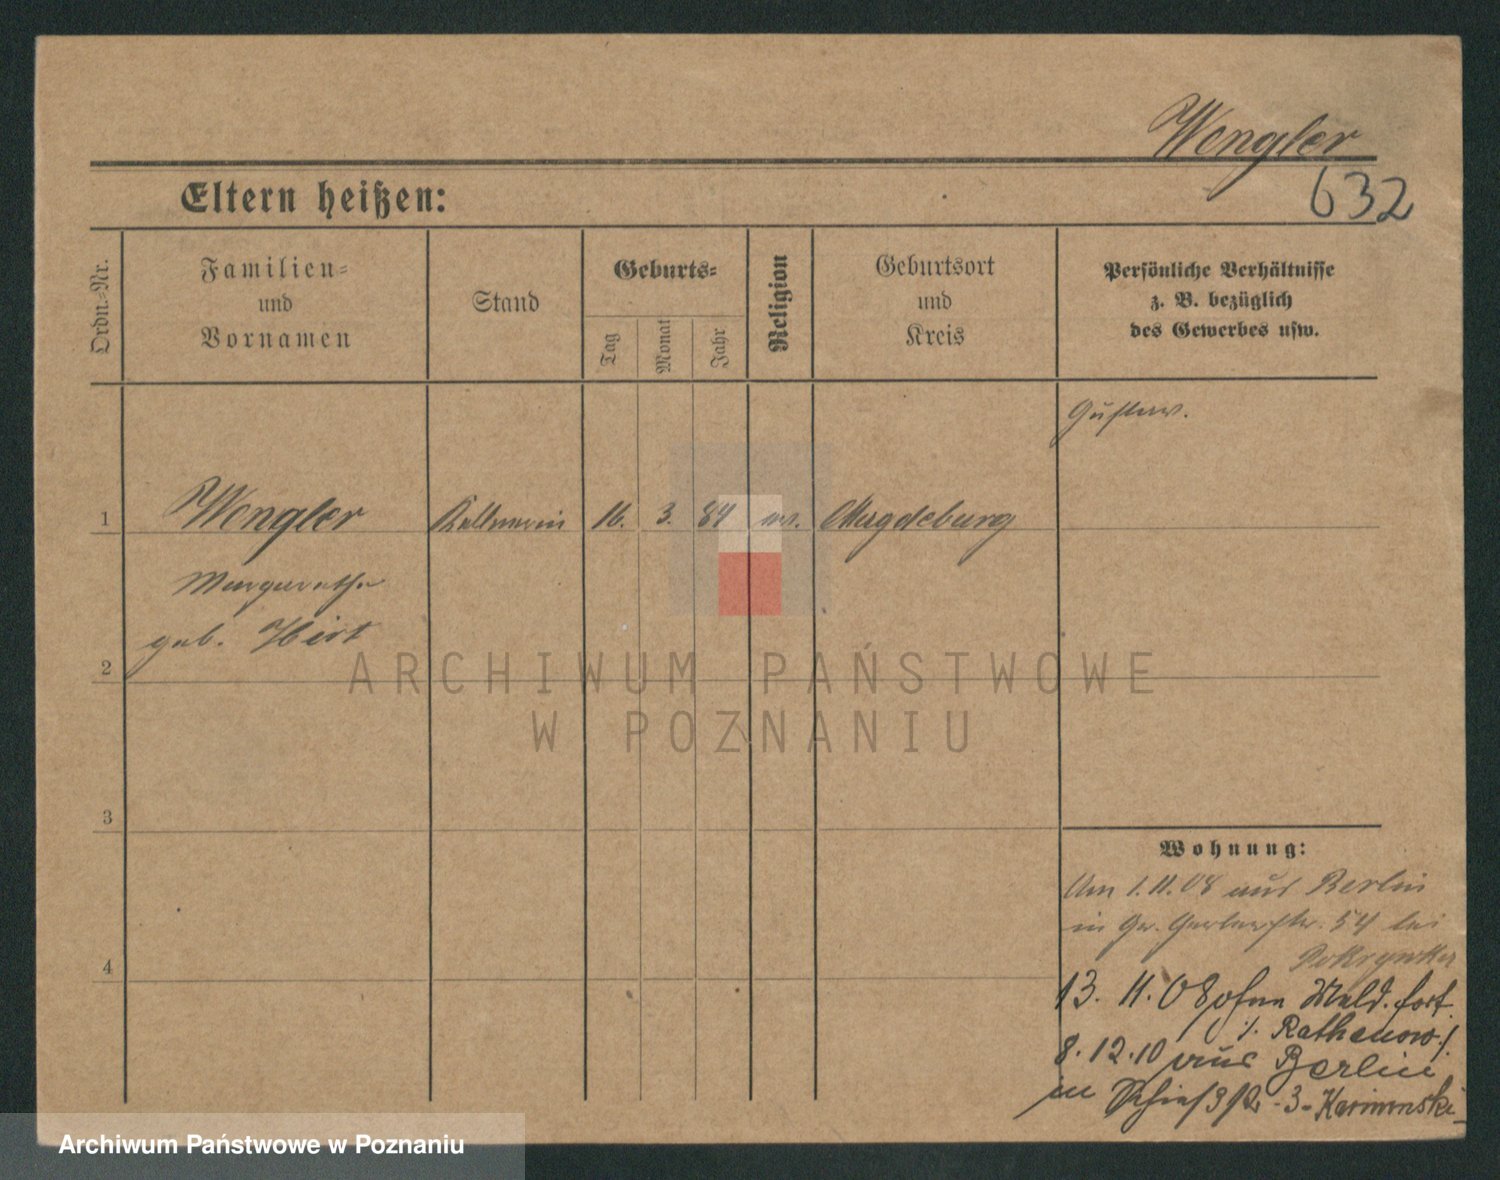 Wengler
632
Eltern heißen:
Ordn.-Nr.
Familien-
und
Vornamen
Stand
Geburts-
Tag
Monat
Jahr
Religion
Geburtsort
und
Kreis
Persönliche Verhältnisse
z. B. bezüglich
des Gewerbes usw.
Gustav.
1
Wengler
Kellnerin
16.
3.
84
ev.
Magdeburg
Margarethe
geb. Hirt
2
ARCHIWUM PAŃSTWOWE
W POZNANIU
3
Wohnung:
Am 1.11.08 aus Berlin
in Gr. Gerberstr. 54 bei
4
13. 11. 08 ohne Meld. fort
./. Rathenow ./.
8.12.10 aus Berlin
in Schießstr. 3
Archiwum Państwowe w Poznaniu